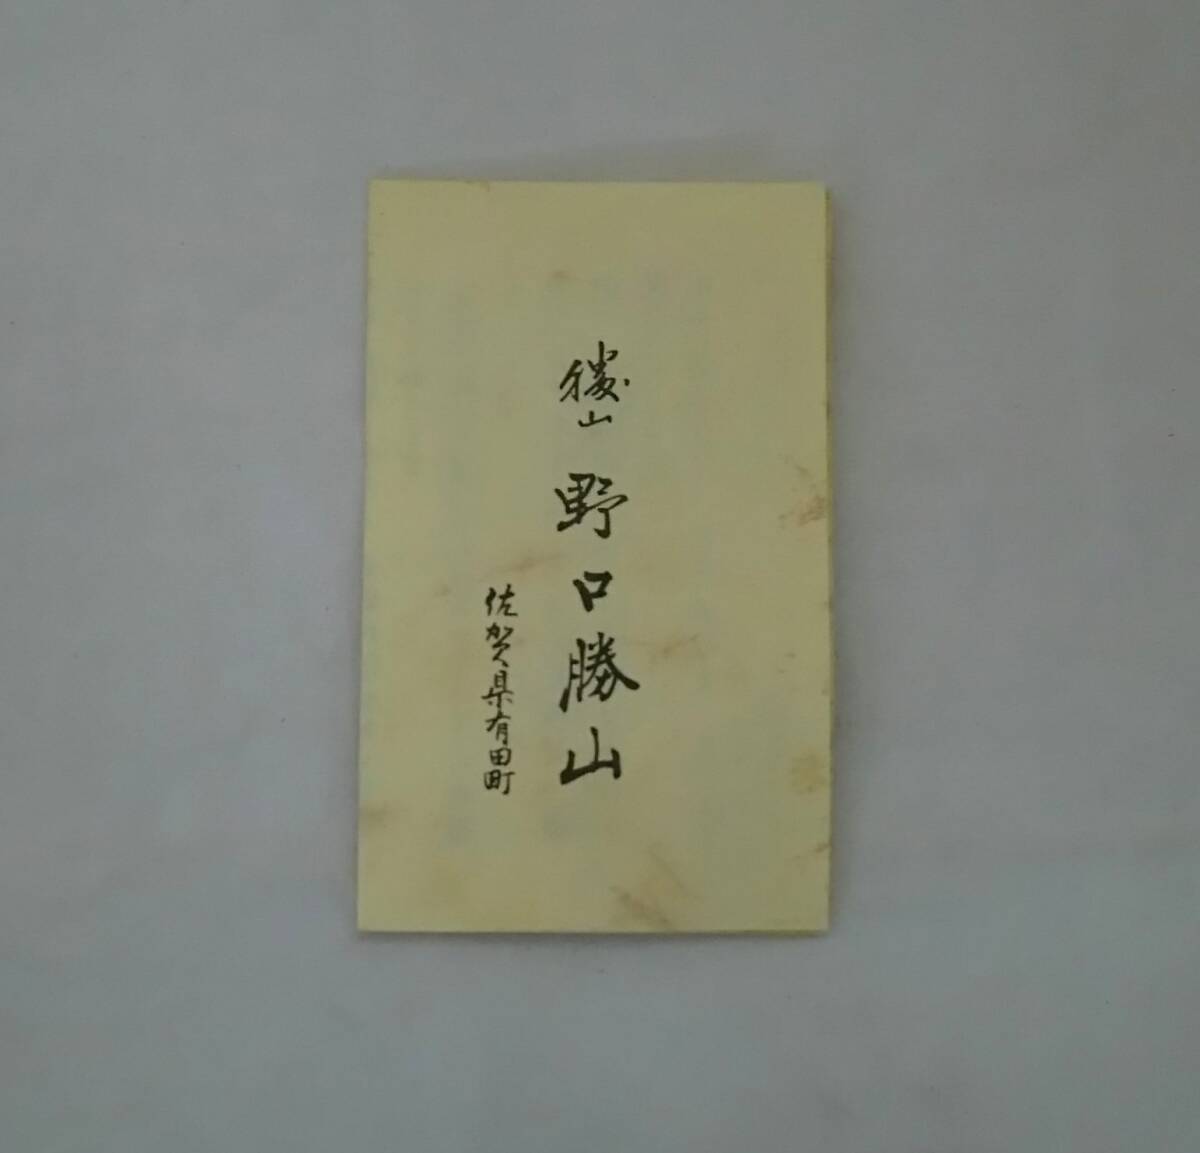 勝山 野口勝山
佐賀県有田町